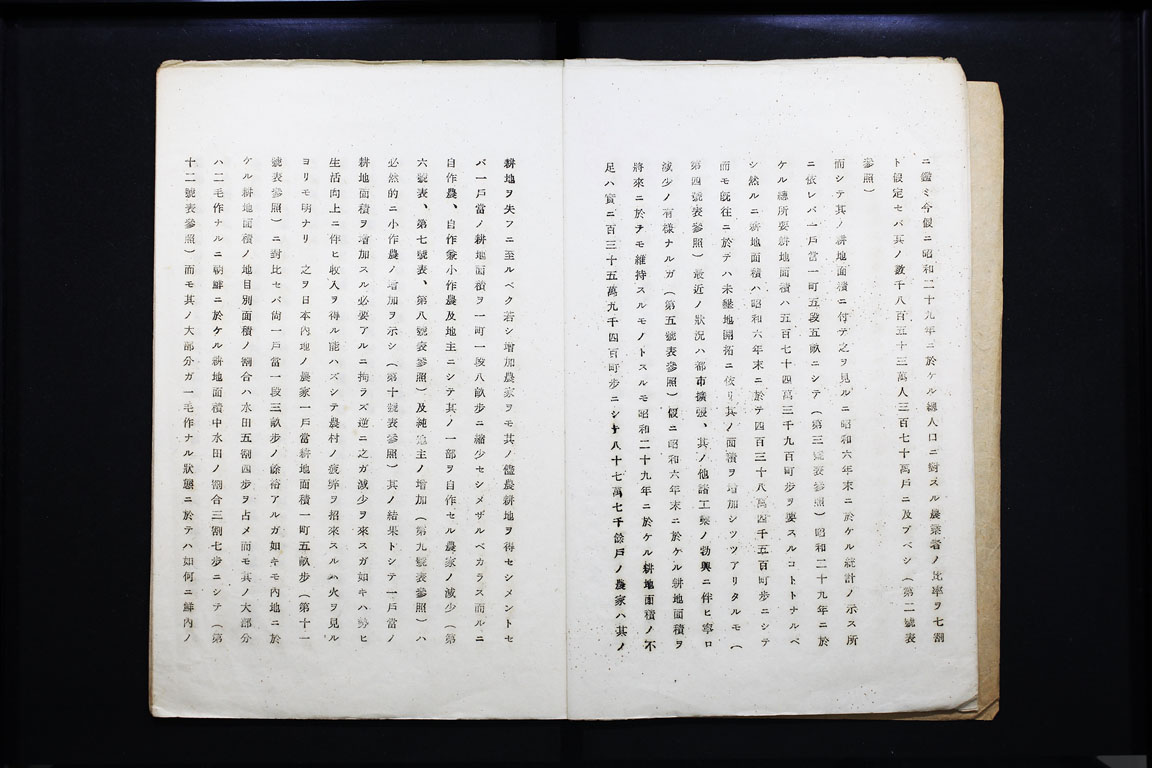 ニ鑑ミ今假ニ昭和二十九年ニ於ケル總人口ニ對スル農業者ノ比率ヲ七割
ト假定セバ其ノ數千八百五十三萬人三百七十萬戶ニ及ブベシ（第二號表
參照）
而シテ其ノ耕地面積ニ付テ之ヲ見ルニ昭和六年末ニ於ケル統計ノ示ス所
ニ依レバ一戶當一町五段五畝ニシテ（第三號表參照）昭和二十九年ニ於
ケル總所要耕地面積ハ五百七十四萬三千九百町步ヲ要スルコトトナルベ
シ然ルニ耕地面積ハ昭和六年末ニ於テ四百三十八萬四千五百町步ニシテ
而モ既往ニ於テハ未墾地開拓ニ依リ其ノ面積ヲ增加シツツアリタルモ（
第四號表參照）最近ノ狀況ハ都市擴張、其ノ他諸工業ノ勃興ニ伴ヒ寧ロ
減少ノ有樣ナルガ（第五號表參照）假ニ昭和六年末ニ於ケル耕地面積ヲ
將來ニ於テモ維持スルモノトスルモ昭和二十九年ニ於ケル耕地面積ノ不
足ハ實ニ百三十五萬九千四百町步ニシテ八十七萬七千餘戶ノ農家ハ其ノ
耕地ヲ失フニ至ルベク若シ增加農家ヲモ其ノ儘農耕地ヲ得セシメントセ
バ一戶當ノ耕地面積ヲ一町一段八畝步ニ縮少セシメザルベカラス而ルニ
自作農、自作兼小作農及地主ニシテ其ノ一部ヲ自作セル農家ノ減少（第
六號表、第七號表、第八號表參照）及純地主ノ增加（第九號表參照）ハ
必然的ニ小作農ノ增加ヲ示シ（第十號表參照）其ノ結果トシテ一戶當ノ
耕地面積ヲ增加スル必要アルニ拘ラズ逆ニ之ガ減少ヲ來スガ如キハ勢ヒ
生活向上ニ伴ヒ收入ヲ得ル能ハズシテ農村ノ疲弊ヲ招來スルハ火ヲ見ル
ヨリモ明ナリ　之ヲ日本內地ノ農家一戶當耕地面積一町五畝步（第十一
號表參照）ニ對比セバ尙一戶當一段三畝步ノ餘裕アルガ如キモ內地ニ於
ケル耕地面積ノ地目別面積ノ割合ハ水田五割四步ヲ占メ而モ其ノ大部分
ハ二毛作ナルニ朝鮮ニ於ケル耕地面積中水田ノ割合三割七步ニシテ（第
十二號表參照）而モ其ノ大部分ガ一毛作ナル狀態ニ於テハ如何ニ鮮內ノ